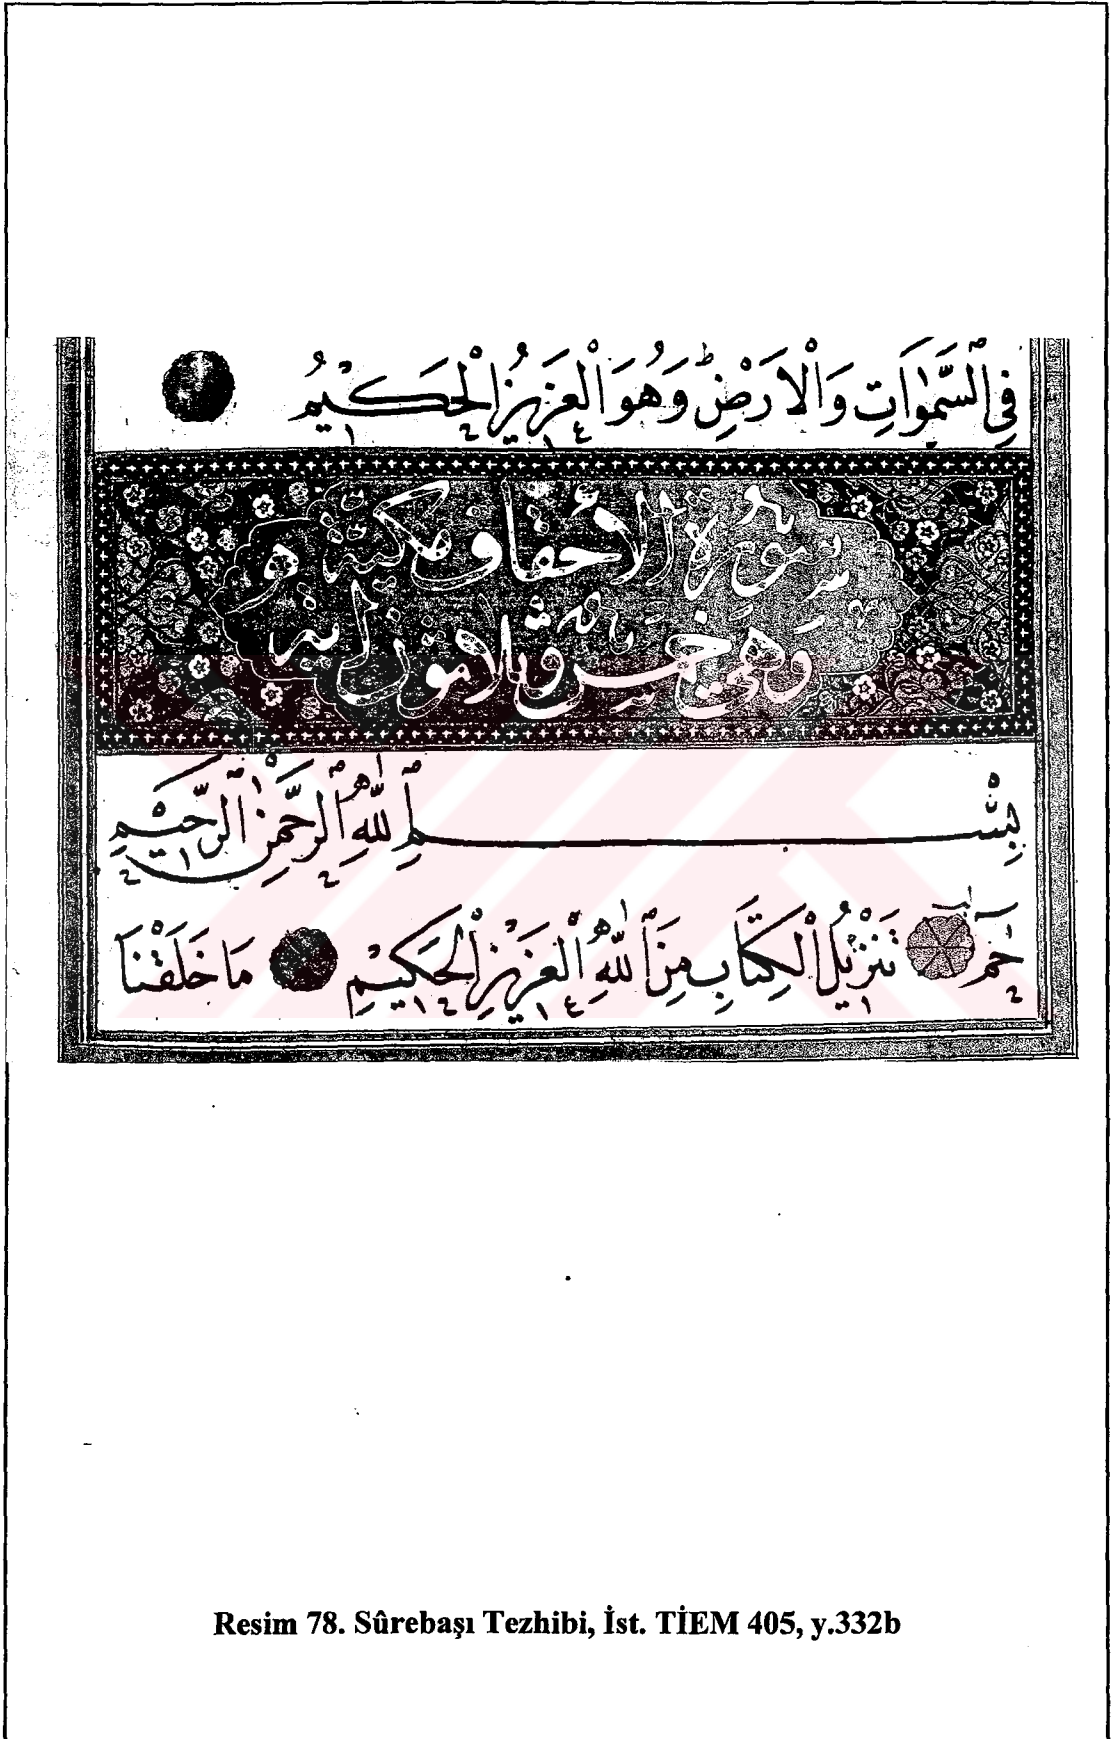 فِي السَّمٰوَاتِ وَالْاَرْضِ وَهُوَ الْعَزِيزُ الْحَكِيمُ
سورة الاحقاف مكية
وهي خمس وثلاثون اية
بِسْمِ اللّٰهِ الرَّحْمٰنِ الرَّحِيمِ
حٰمٓ تَنْزِيلُ الْكِتَابِ مِنَ اللّٰهِ الْعَزِيزِ الْحَكِيمِ مَا خَلَقْنَا
Resim 78. Sûrebaşı Tezhibi, İst. TİEM 405, y.332b